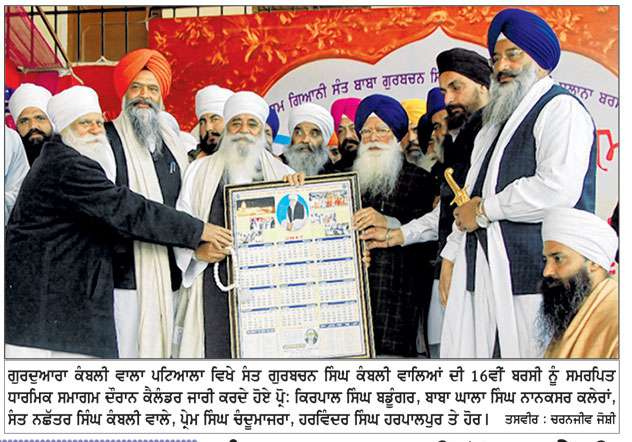 ਮ ਗਿਆਨੀ ਸੰਤ ਬਾਬਾ ਗੁਰਬਚਨ ਸਿੰਘ
ਲਾਨਾ ਬਰਸੀ
ਗੁਰਦੁਆਰਾ ਕੰਬਲੀ ਵਾਲਾ ਪਟਿਆਲਾ ਵਿਖੇ ਸੰਤ ਗੁਰਬਚਨ ਸਿੰਘ ਕੰਬਲੀ ਵਾਲਿਆਂ ਦੀ 16ਵੀਂ ਬਰਸੀ ਨੂੰ ਸਮਰਪਿਤ
ਧਾਰਮਿਕ ਸਮਾਗਮ ਦੌਰਾਨ ਕੈਲੰਡਰ ਜਾਰੀ ਕਰਦੇ ਹੋਏ ਪ੍ਰੋ: ਕਿਰਪਾਲ ਸਿੰਘ ਬਡੂੰਗਰ, ਬਾਬਾ ਘਾਲਾ ਸਿੰਘ ਨਾਨਕਸਰ ਕਲੇਰਾਂ,
ਸੰਤ ਨਛੱਤਰ ਸਿੰਘ ਕੰਬਲੀ ਵਾਲੇ, ਪ੍ਰੇਮ ਸਿੰਘ ਚੰਦੂਮਾਜਰਾ, ਹਰਵਿੰਦਰ ਸਿੰਘ ਹਰਪਾਲਪੁਰ ਤੇ ਹੋਰ। ਤਸਵੀਰ : ਚਰਨਜੀਵ ਜੋਸ਼ੀ